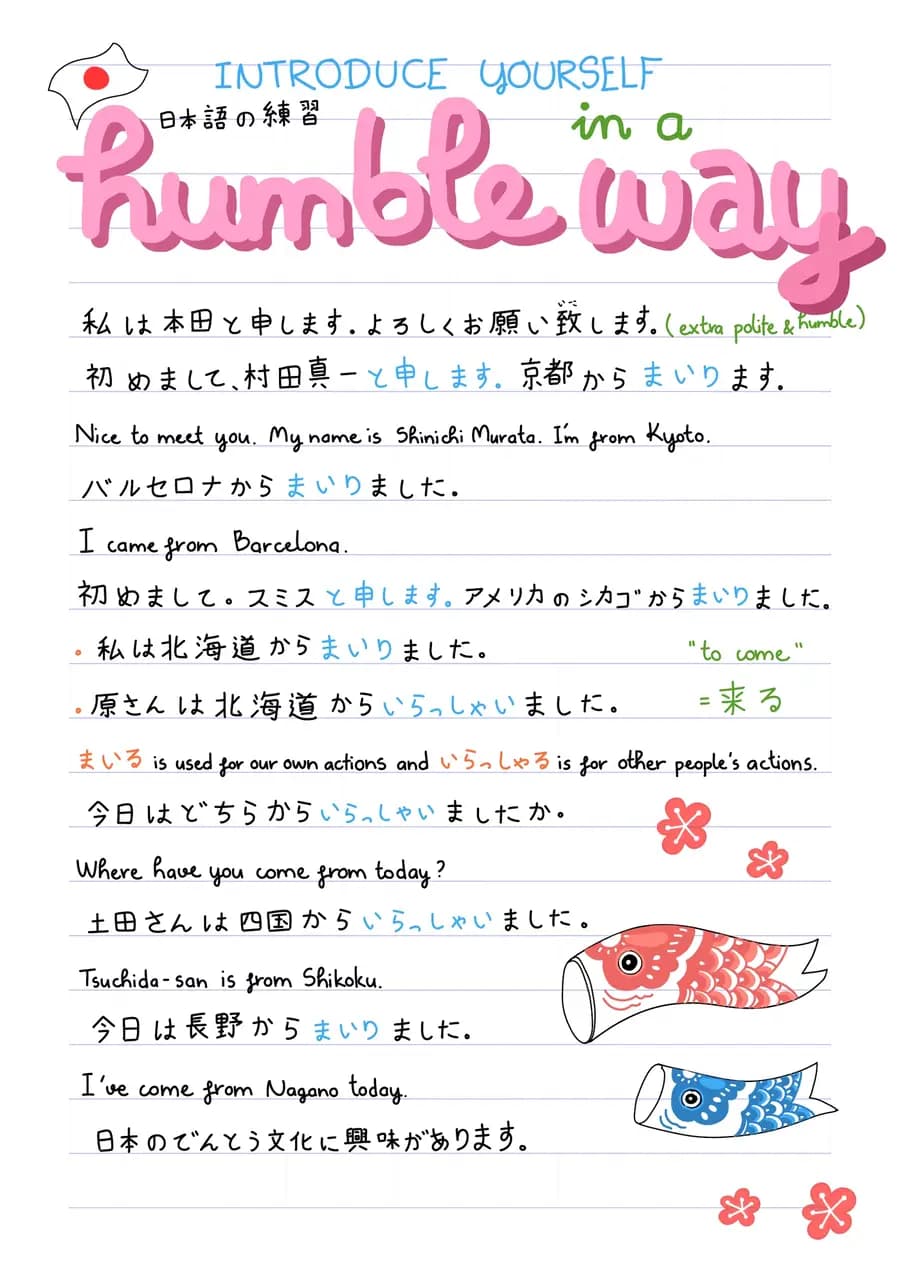 INTRODUCE YOURSELF
日本語の練習
in a
humble way
私は本田と申します.よろしくお願い致します。(extra polite & humble)
いた
初めまして、村田真一と申します。京都からまいります。
Nice to meet you. My name is Shinichi Murata. I'm from Kyoto.
バルセロナからまいりました。
I came from Barcelona.
初めまして。スミスと申します。アメリカのシカゴからまいりました。
• 私は北海道からまいりました。
"to come"
• 原さんは北海道からいらっしゃいました。
=来る
まいる is used for our own actions and いらっしゃる is for other people's actions.
今日はどちらからいらっしゃいましたか。
Where have you come from today?
土田さんは四国からいらっしゃいました。
Tsuchida-san is from Shikoku.
今日は長野からまいりました。
I've come from Nagano today.
日本のでんとう文化に興味があります。